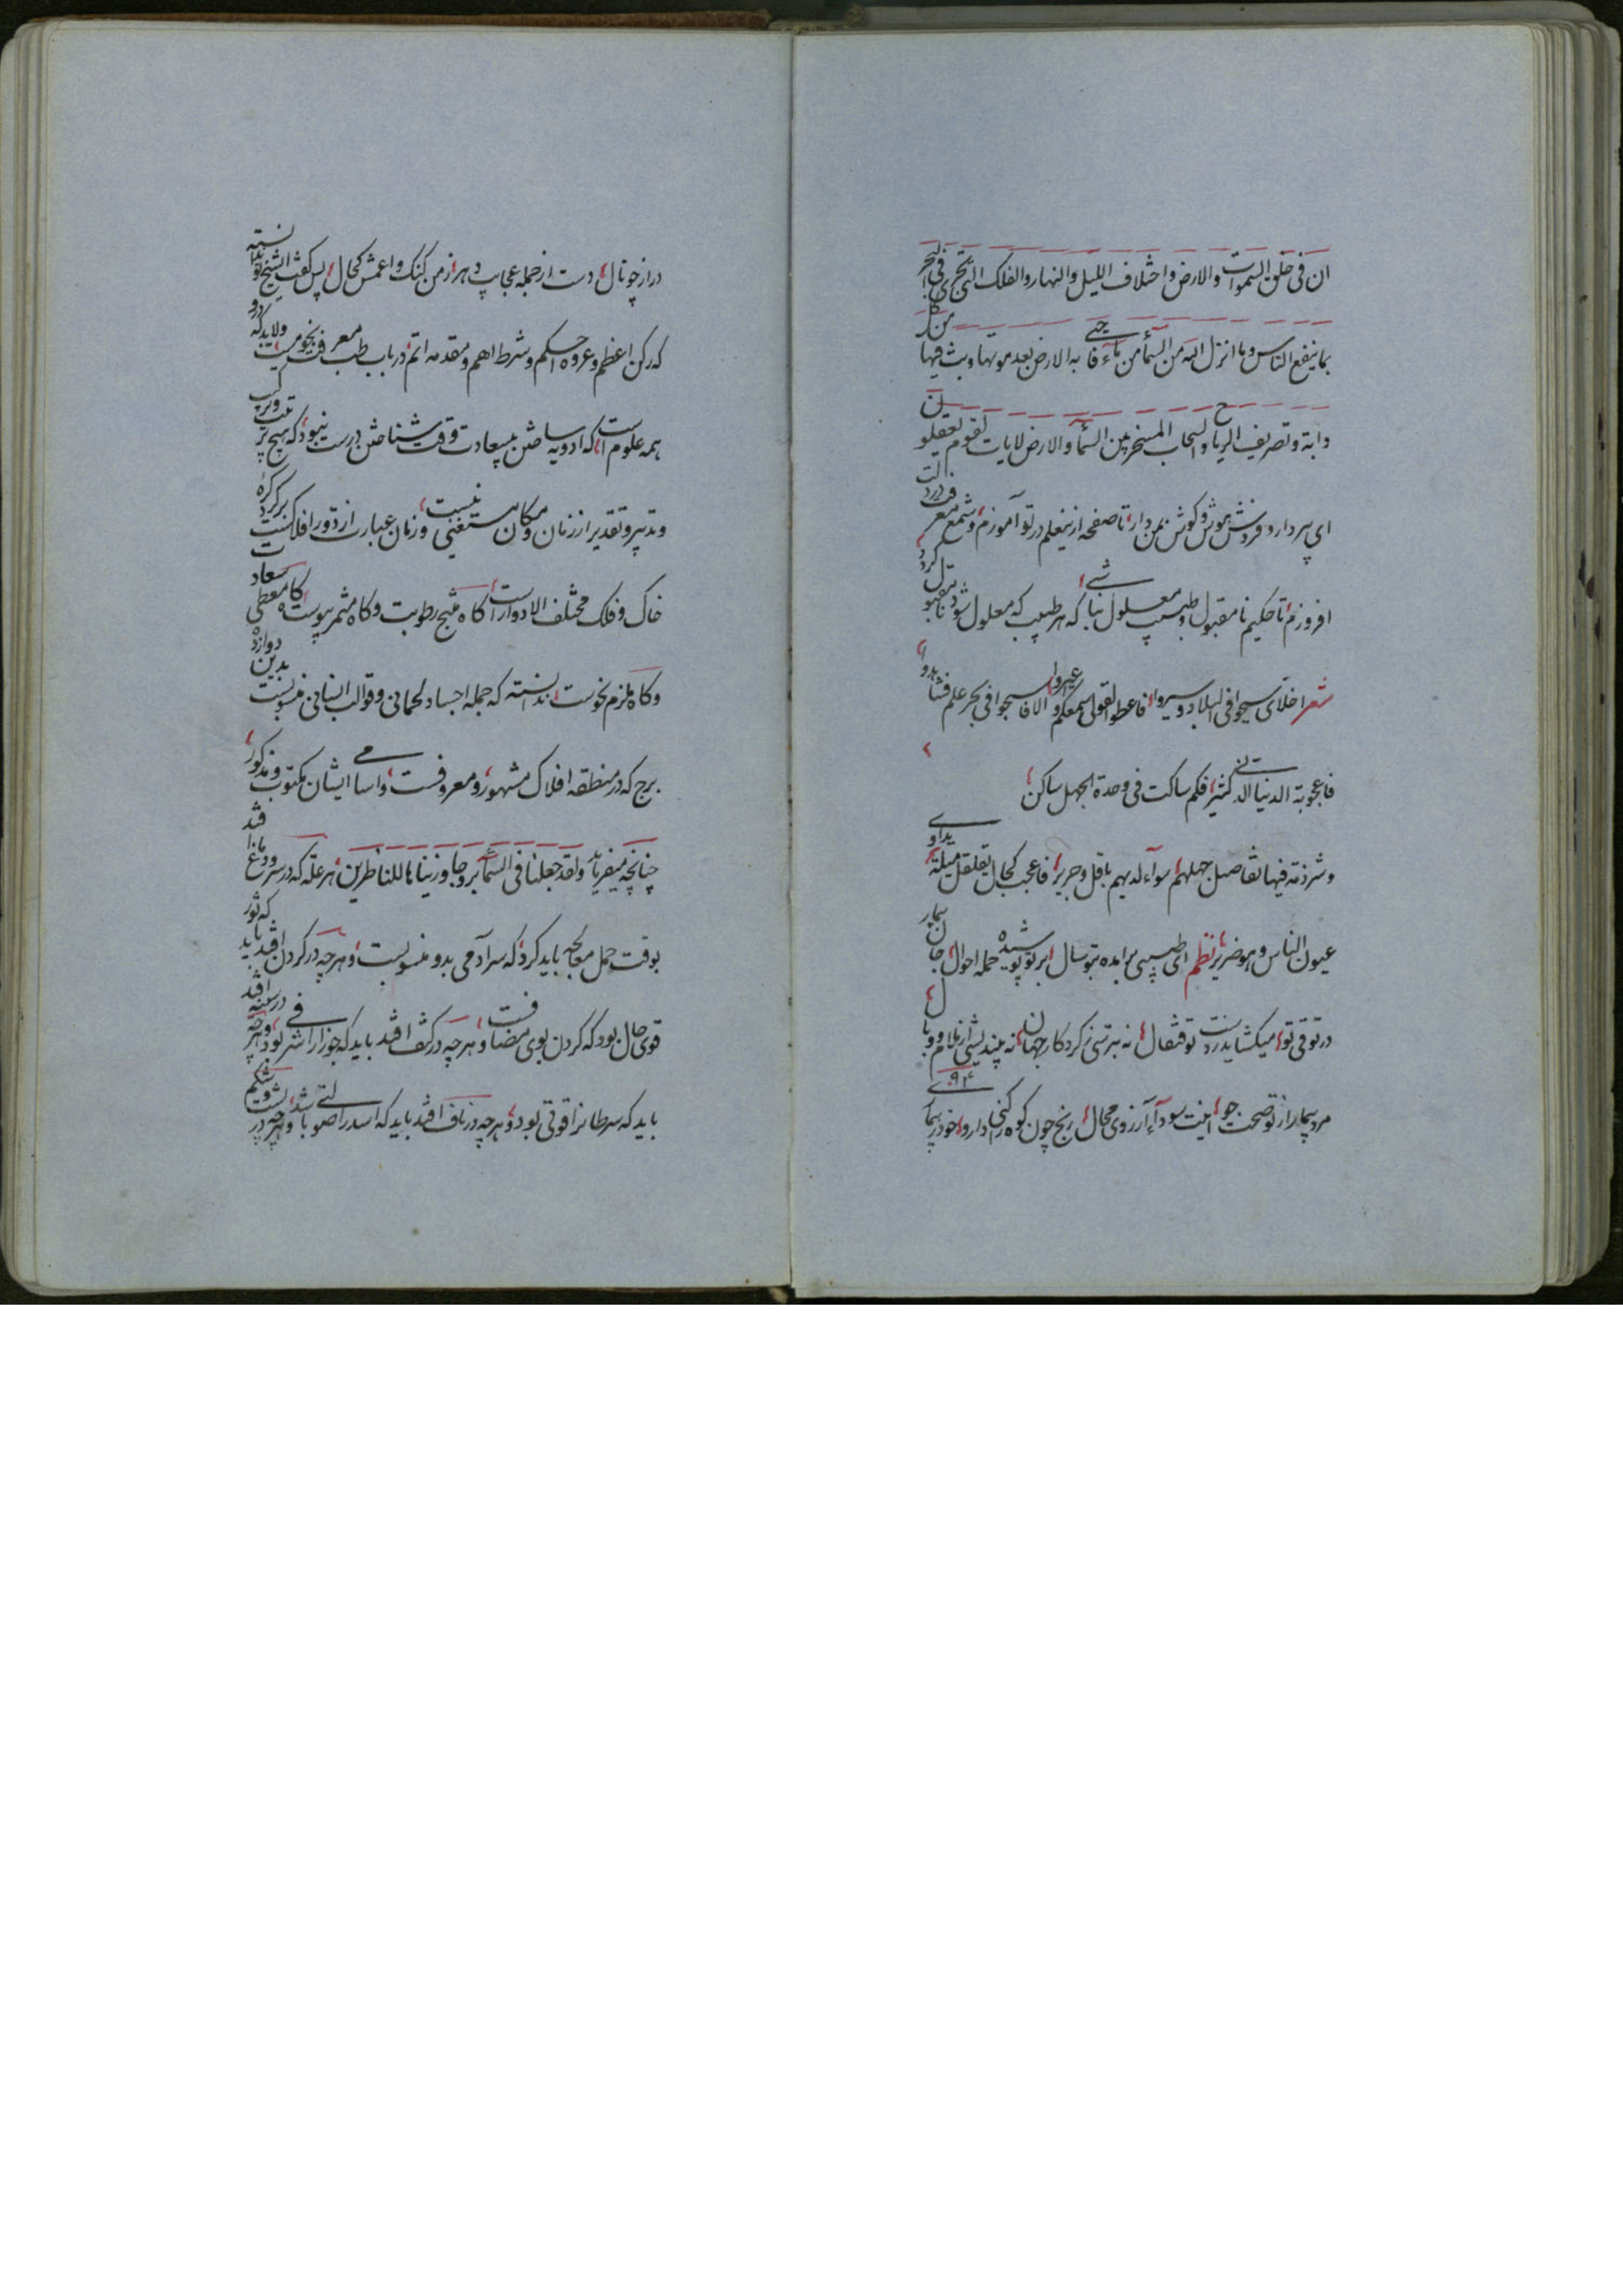 ان فی خلق السموات والارض واختلاف اللیل والنهار والفلک التی تجری فی البحر
بما ینفع الناس وما انزل الله من السمآء من مآء فاحیی به الارض بعد موتها وبث فیها من کل
دابة وتصریف الریاح والسحاب المسخر بین السمآء والارض لایات لقوم یعقلون
ای پسر دار و فروش هوش و کوش بمن دار تا صفحه ازینعلم در تو آموزم وشمع معرفت درذات
افروزم تا حکیم نامقبول وطبیب معلول نباشی که هر طبیب که معلول شود نامقبول کردد
شعر اخلای سیحوا فی البلاد وسیروا فاعطوا القول سمعکم والا فاسبحوا فی بحر علم
فاعجوبة الدنیا کثیر فکم ساکت فی وحدة الجهل ساکن
وشرذمة فیها تفاصیل جهلهم سوآء لدیهم باقل وجریر فاعجب کحال یداوی
عیون الناس وهو ضریر نظم ای طبیبی برآمده بتو سال بر تو پوشیده جمله احوال جان بیمار
در توقی تو میکشاید زردنت تو قیفال نه بترسی ز کردکار جهان نه بیندیشی از ملام ووبال
مرد بیمار از تو صحت جوی اینت سودآء آرزوی محال رنج چون کوه را کنی دارو خود
دراز چونال دست از جمله عجایب دهر زمن کنک واعمش کحال پس کفت الشیخ
که رکن اعظم وعروه احکم وشرط اهم ومقدمه اتم در باب طب معرفت نجومست ولابد که
همه علوم است که ادویه ساختن بیسعادت وقت شناختن درست نبود که هیچ ترکیب
وتدبیر وتقدیر از زمان ومکان مستغنی نیست وزمان عبارت از دور افلاکست بر کره
خاک وفلک مختلف الادوار است کاه منتج رطوبت وکاه مثمر یبوست کاه معطی سعادت
وکاه ملزم نحوست ندانسته که جمله اجساد لحمانی وقوالب انسانی منسوبست بدین دوازده
برج که در منطقه افلاک مشهور ومعروفست واسامی ایشان مکتوب ومذکور
چنانچه میفرماید ولقد جعلنا فی السمآء بروجا وزیناها للناظرین هر علة که در سر ودماغ افتد
بوقت حمل معالجه باید کرد که سر آدمی بدو منسوبست وهر چه در کردن افتد باید که ثور
قوی حال بود که کردن بوی مضافست وهر چه در کتف افتد باید که جوزا را شرفی بود وهر چه در سینه افتد
باید که سرطانرا قوتی بود وهر چه در ناف افتد باید که اسد را صولتی باشد وهر چه در پشت وشکم